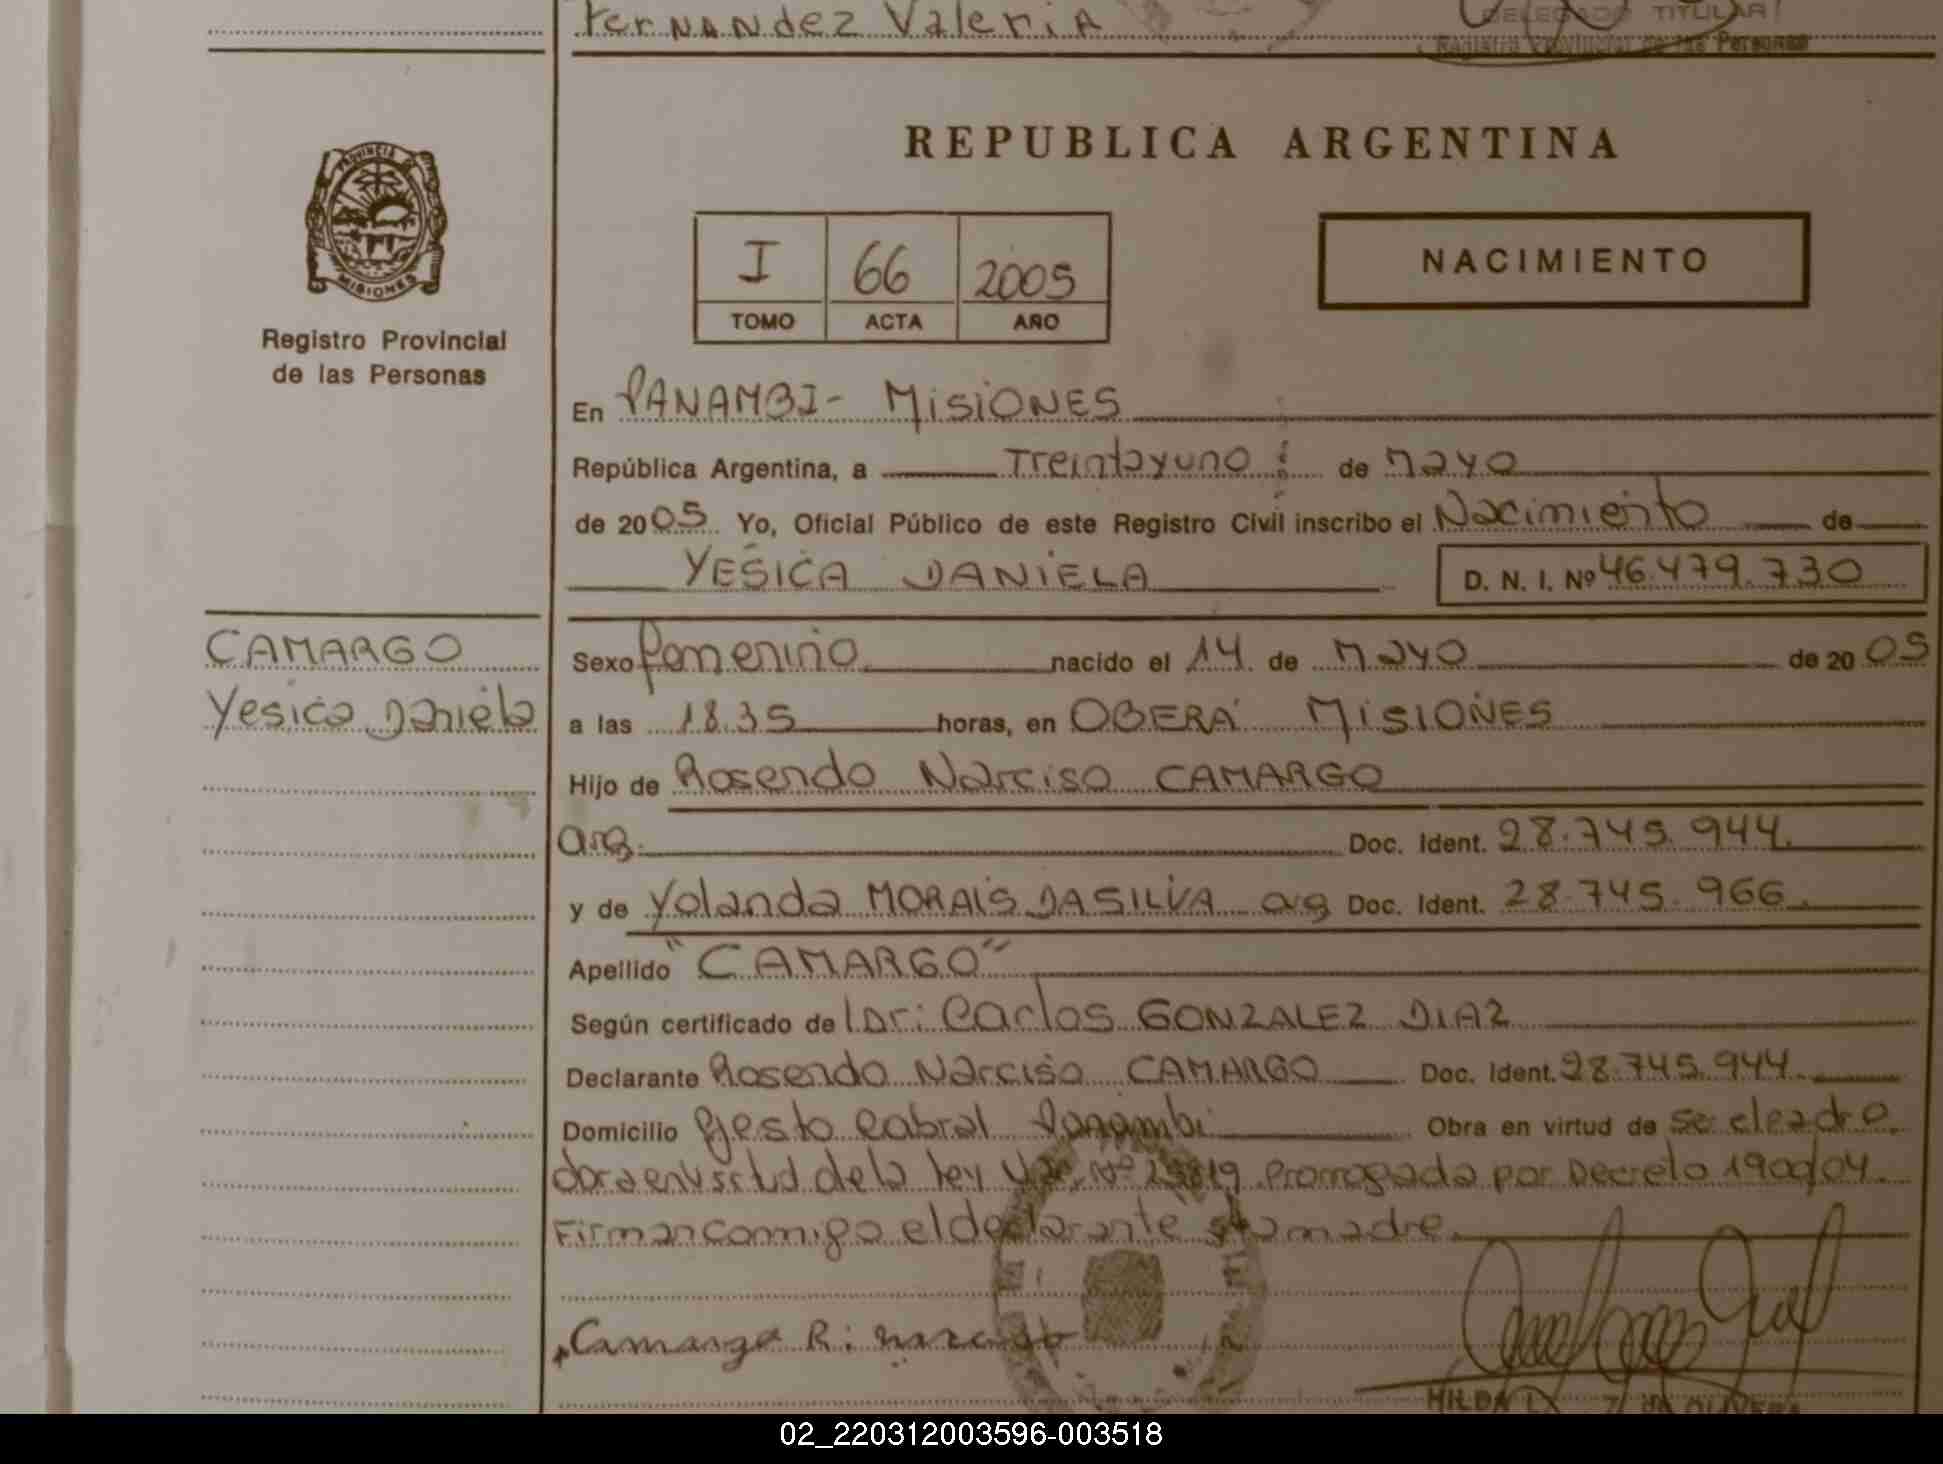 Fernandez Valeria
DELEGADO TITULAR
Registro Provincial de las Personas
REPUBLICA ARGENTINA
PROVINCIA DE
MISIONES
Registro Provincial
de las Personas
I 66 2005
TOMO ACTA AÑO
NACIMIENTO
En PANAMBI- MisiONES
República Argentina, a Treintayuno de Mayo
de 2005 Yo, Oficial Público de este Registro Civil inscribo el Nacimiento de
YESICA DANIELA D. N. I. Nº 46.479.730
CAMARGO
Yesica Daniela
Sexo femenino nacido el 14 de Mayo de 2005
a las 18.35 horas, en OBERÁ MisiONES
Hijo de Rosendo Narciso CAMARGO
arg. Doc. Ident. 28.745.944.
y de Yolanda MORAIS DASILVA arg Doc. Ident. 28.745.966.
Apellido "CAMARGO"
Según certificado de Carlos GONZALEZ DIAZ
Declarante Rosendo Narciso CAMARGO Doc. Ident. 28.745.944.
Domicilio Cabral Panambi Obra en virtud de
obra en virtud de la ley Nº Prorrogada por Decreto 1900/04.
Firman conmigo el declarante y la madre.
Camargo R. narciso
HILDA
02_220312003596-003518